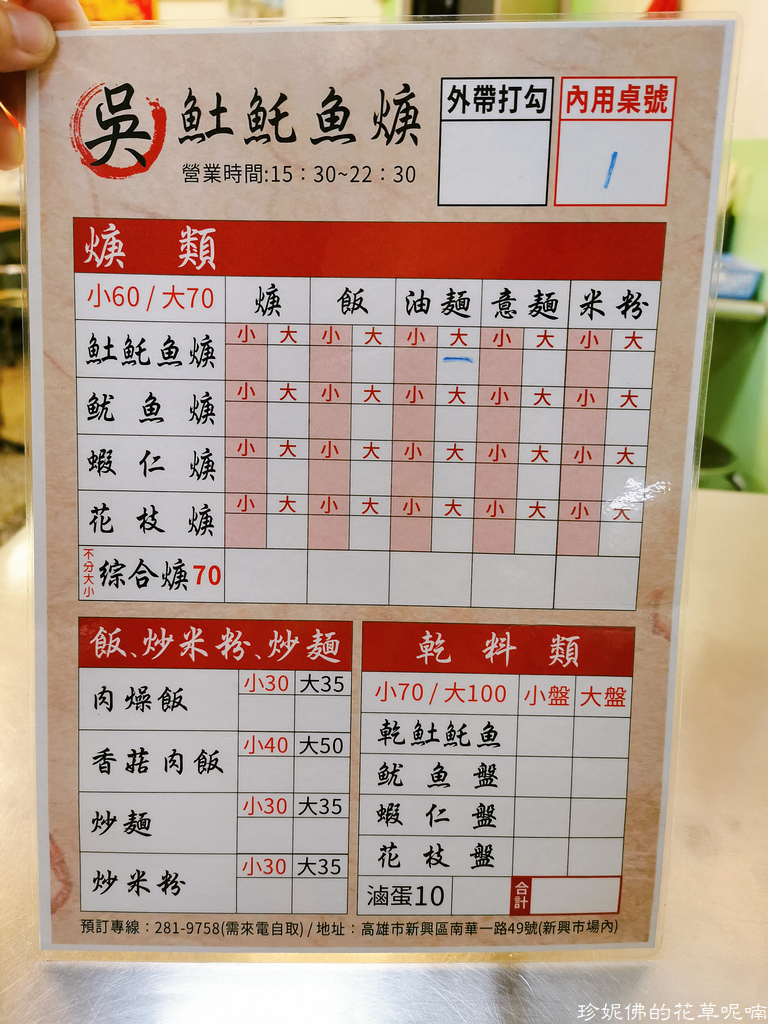 吳 魠魠魚焿
營業時間:15:30~22:30
外帶打勾
內用桌號
1
焿 類
小60 / 大70 焿 飯 油麵 意麵 米粉
魠魠魚焿 小 大 小 大 小 大 小 大 小 大
一
魷魚焿 小 大 小 大 小 大 小 大 小 大
蝦仁焿 小 大 小 大 小 大 小 大 小 大
花枝焿 小 大 小 大 小 大 小 大 小 大
不分大小 綜合焿70
飯、炒米粉、炒麵
肉燥飯 小30 大35
香菇肉飯 小40 大50
炒麵 小30 大35
炒米粉 小30 大35
乾 料 類
小70 / 大100 小盤 大盤
乾𩵚魠魚
魷魚盤
蝦仁盤
花枝盤
滷蛋10 合計
預訂專線:281-9758(需來電自取) / 地址:高雄市新興區南華一路49號(新興市場內)
珍妮佛的花草呢喃